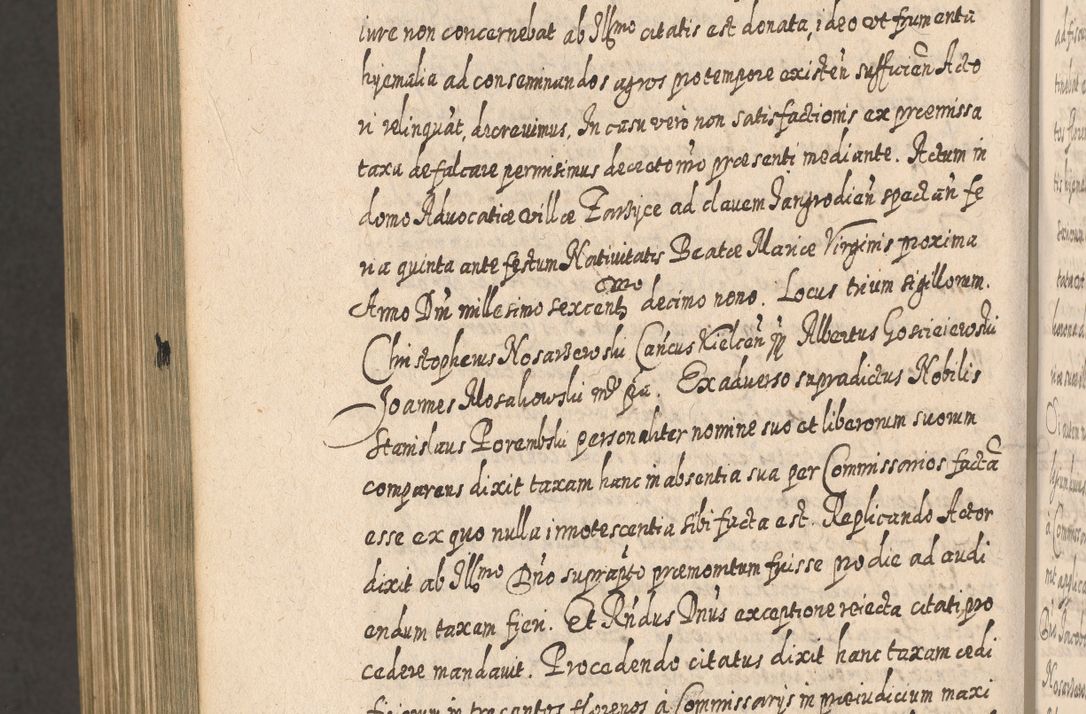 iure non concernebat ab Illmo citatis est donata, ideo ut frumenta
hyemalia ad conseminandos agros pro tempore existen̄ sufficien̄ Acto
ri relinquat, decrevimus, In casu vero non satisfactionis ex præmissa
taxa defalcare permisimus decreto nr̄o præsenti mediante. Actum in
domo Advocatiæ villæ Tarżyce ad clavem Jangrodien̄ spectan̄ fe
ria quinta ante festum Nativitatis Beatæ Mariæ Virginis proxima
Anno Dn̄i millesimo sexcentmo decimo nono. Locus trium sigillorum.
Christopherus Nosarzewski Can̄cus Kielcen̄ Albertus Goscieiewski
Joannes Mosakowski mp. Ex adverso supradictus Nobilis
Stanislaus Porembski personaliter nomine suo et liberorum suorum
comparens dixit taxam hanc in absentia sua per Commissarios factā
esse ex quo nulla innotescentia sibi facta est. Replicando Actor
dixit ab Illmo Dn̄o præmonitum fuisse pro die ad audi
endum taxam fieri. Et Rn̄dus Dn̄us exceptione reiecta citati, pro
cedere mandavit. Procedendo citatus dixit hanc taxam cedi
in trecentos florenos à Commissarys in præiudicium maxi